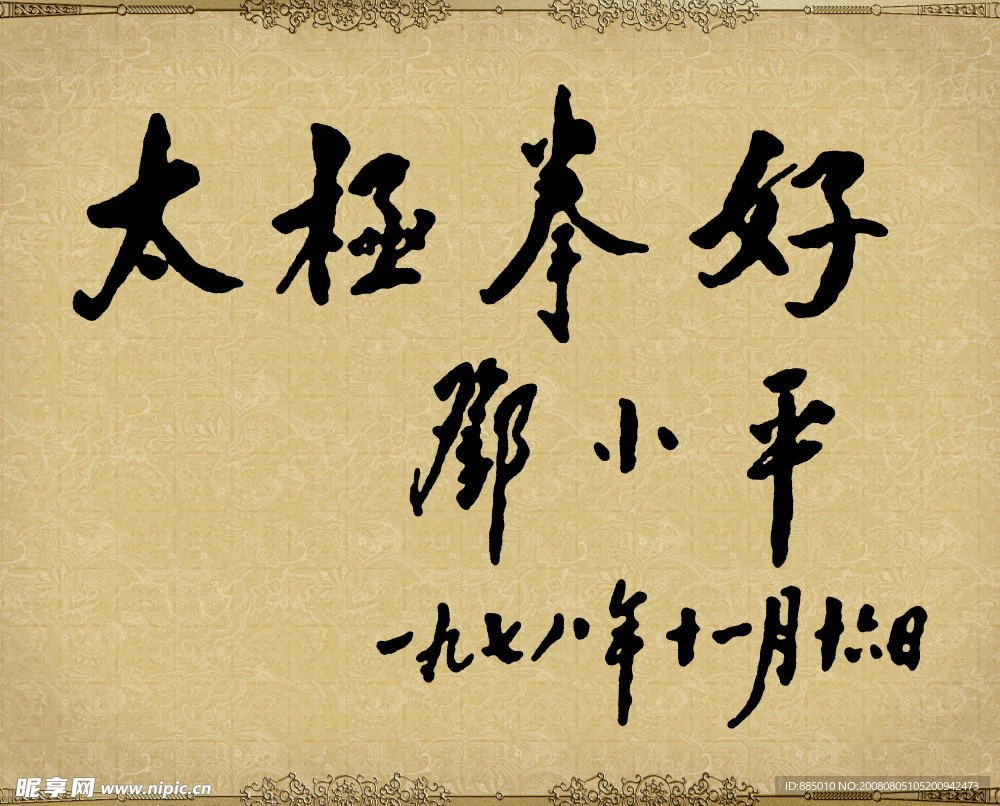 太極拳好
鄧小平
一九七八年十一月十六日
昵享网 www.nipic.cn
ID:885010 NO:20080805105200942473